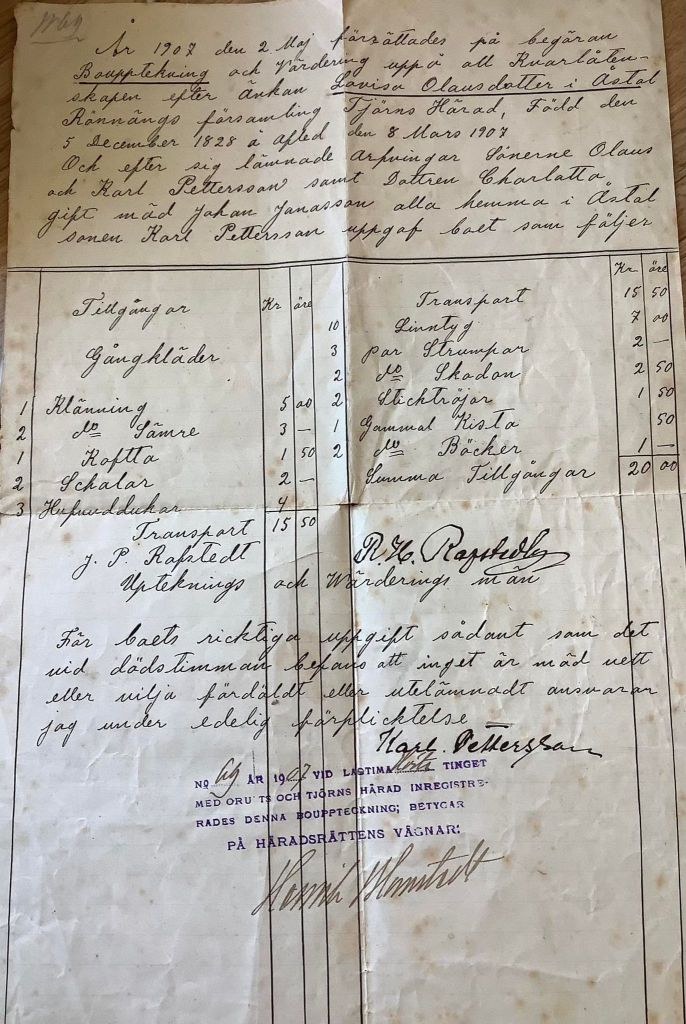 År 1907 den 2 Maj förrättades på begäran
Bouppteknıng och Värdering uppå all Kvarlåten-
skapen efter Änkan Lovisa Olausdotter i Åstal
Rönnängs församling Tjörns Härad, Född den
5 December 1828 å afled den 8 Mars 1907
Och efter sig lämnade arfvingar Sönerne Olaus
och Karl Pettersson samt Dottren Charlatta
gift mäd Johan Janasson alla hemma i Åstal
sonen Karl Pettersson uppgaf boet som följer
Tillgångar Kr öre
Gångkläder
1 Klänning 5 00
2 do Sämre 3 —
1 Koftta 1 50
2 Schalar 2 —
3 Hufvuddukar 4
Transport 15 50
Kr öre
Transport 15 50
10 Linntyg 7 00
3 par Strumpar 2 —
2 do Skodon 2 50
2 Sticktröjar 1 50
1 Gammal Kista 50
2 do Böcker 1 —
Summa Tillgångar 20 00
J. P. Rafstedt R. H. Rafstedt
Upteknings och Wärderings män
Får boets ricktiga uppgift sådant som det
vid dödstimman befans att inget är mäd vett
eller vilja fördåldt eller utelämnadt ansvarar
jag under edelig förplicktelse
Karl. Pettersson
No 69 ÅR 1907 VID LAGTIMA Höste TINGET
MED ORUSTS OCH TJÖRNS HÄRAD INREGISTRE-
RADES DENNA BOUPPTECKNING; BETYGAR
PÅ HÄRADSRÄTTENS VÄGNAR:
Henrik